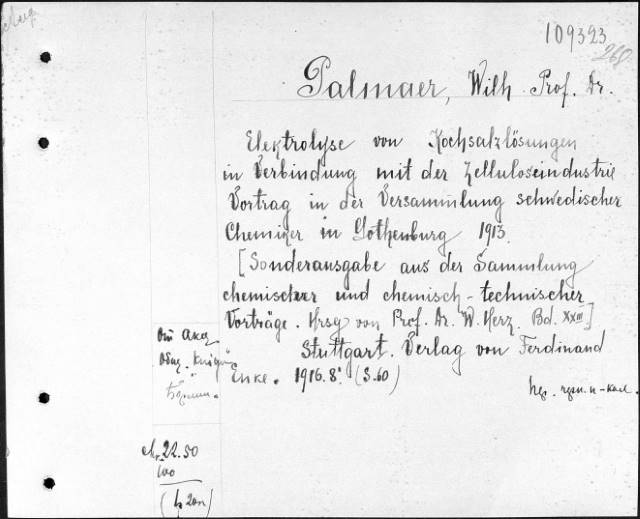 109393
268
Palmaer, Wilh Prof. Dr.
Elektrolyse von Kochsalzlösungen
in Verbindung mit der Zelluloseindustrie
Vortrag in der Versammlung schwedischer
Chemiker in Gothenburg 1913.
[Sonderausgabe aus der Sammlung
chemischer und chemisch-technischer
Vorträge. Hrsg von Prof. Dr. W. Herz. Bd. XXIII]
Stuttgart. Verlag von Ferdinand
Enke. 1916. 8°. (S. 60)
22.50
100